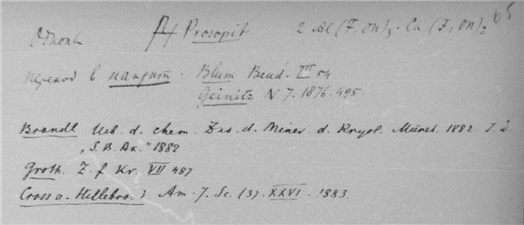 Prosopit 2 Al (F, OH)3. Ca (F, OH)2 65
переход в накрит. Blum Pseud. III 54
Geinitz N. J. 1876. 495
Brandl Ueb. d. chem. Zus. d. Miner. d. Kryol. Münch. 1882.
„S. B. Ak.” 1882
Groth. Z. f. Kr. VII 487
Cross u. Hillebr. Am. J. Sc. (3). XXVI. 1883.